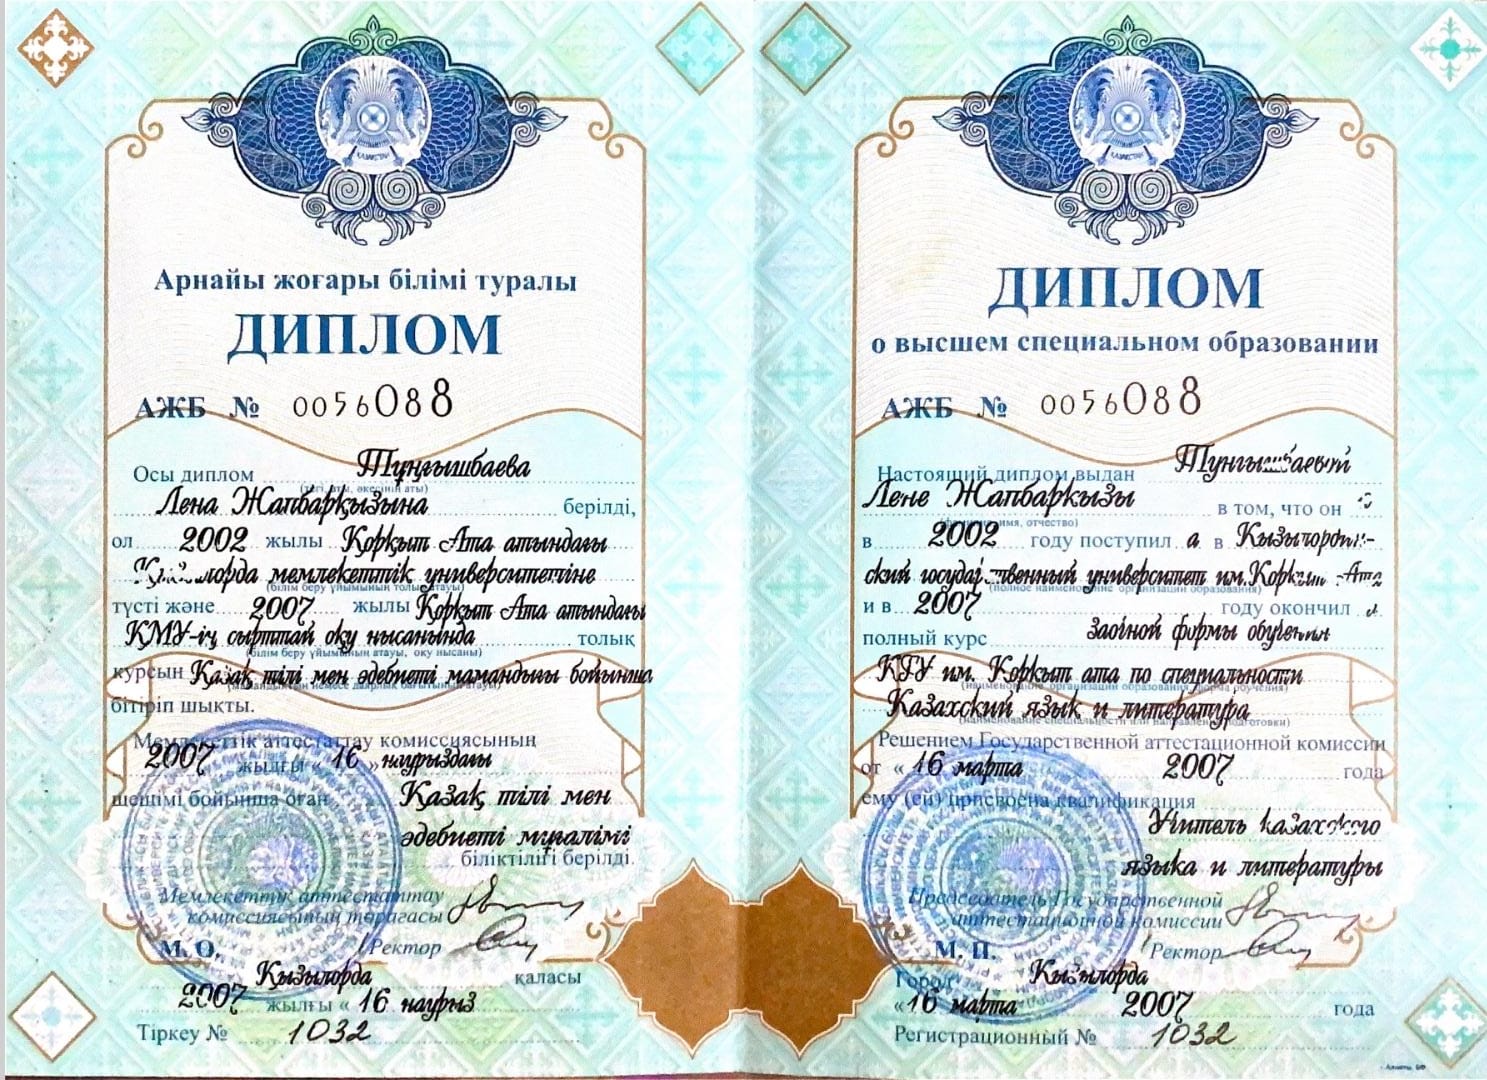 ҚАЗАҚСТАН
Арнайы жоғары білімі туралы
ДИПЛОМ
АЖБ № 0056088
Осы диплом Тұңғышбаева
(тегі, аты, әкесінің аты)
Лена Жапбарқызына берілді,
ол 2002 жылы Қорқыт Ата атындағы
Қызылорда мемлекеттік университетіне
(білім беру ұйымының толық атауы)
түсті және 2007 жылы Қорқыт Ата атындағы
ҚМУ-ің сырттай оқу нысанында толық
(білім беру ұйымының атауы, оқу нысаны)
курсын Қазақ тілі мен әдебиеті мамандығы бойынша
(мамандықтың немесе даярлық бағытының атауы)
бітіріп шықты.
Мемлекеттік аттестаттау комиссиясының
2007 жылғы « 16 » наурыздағы
шешімі бойынша оған Қазақ тілі мен
әдебиеті мұғалімі
біліктілігі берілді.
Мемлекеттік аттестаттау
комиссиясының төрағасы
М. О. Ректор
Қызылорда қаласы
2007 жылғы « 16 наурыз
Тіркеу № 1032
ҚАЗАҚСТАН
ДИПЛОМ
о высшем специальном образовании
АЖБ № 0056088
Настоящий диплом выдан Тунгышбаевой
Лене Жапбаркызы в том, что он
(фамилия, имя, отчество)
в 2002 году поступил а в Кызылордин-
ский государственный университет им. Коркыт -Ата
(полное наименование организации образования)
и в 2007 году окончил а
полный курс заочной формы обучения
КГУ им. Коркыт ата по специальности
(наименование организации образования, форма обучения)
Казахский язык и литература
(наименование специальности или направления подготовки)
Решением Государственной аттестационной комиссии
от « 16 марта 2007 года
ему (ей) присвоена квалификация
Учитель казахского
языка и литературы
Председатель Государственной
аттестационной комиссии
М. П. Ректор
Город Кызылорда
« 16 марта 2007 года
Регистрационный № 1032